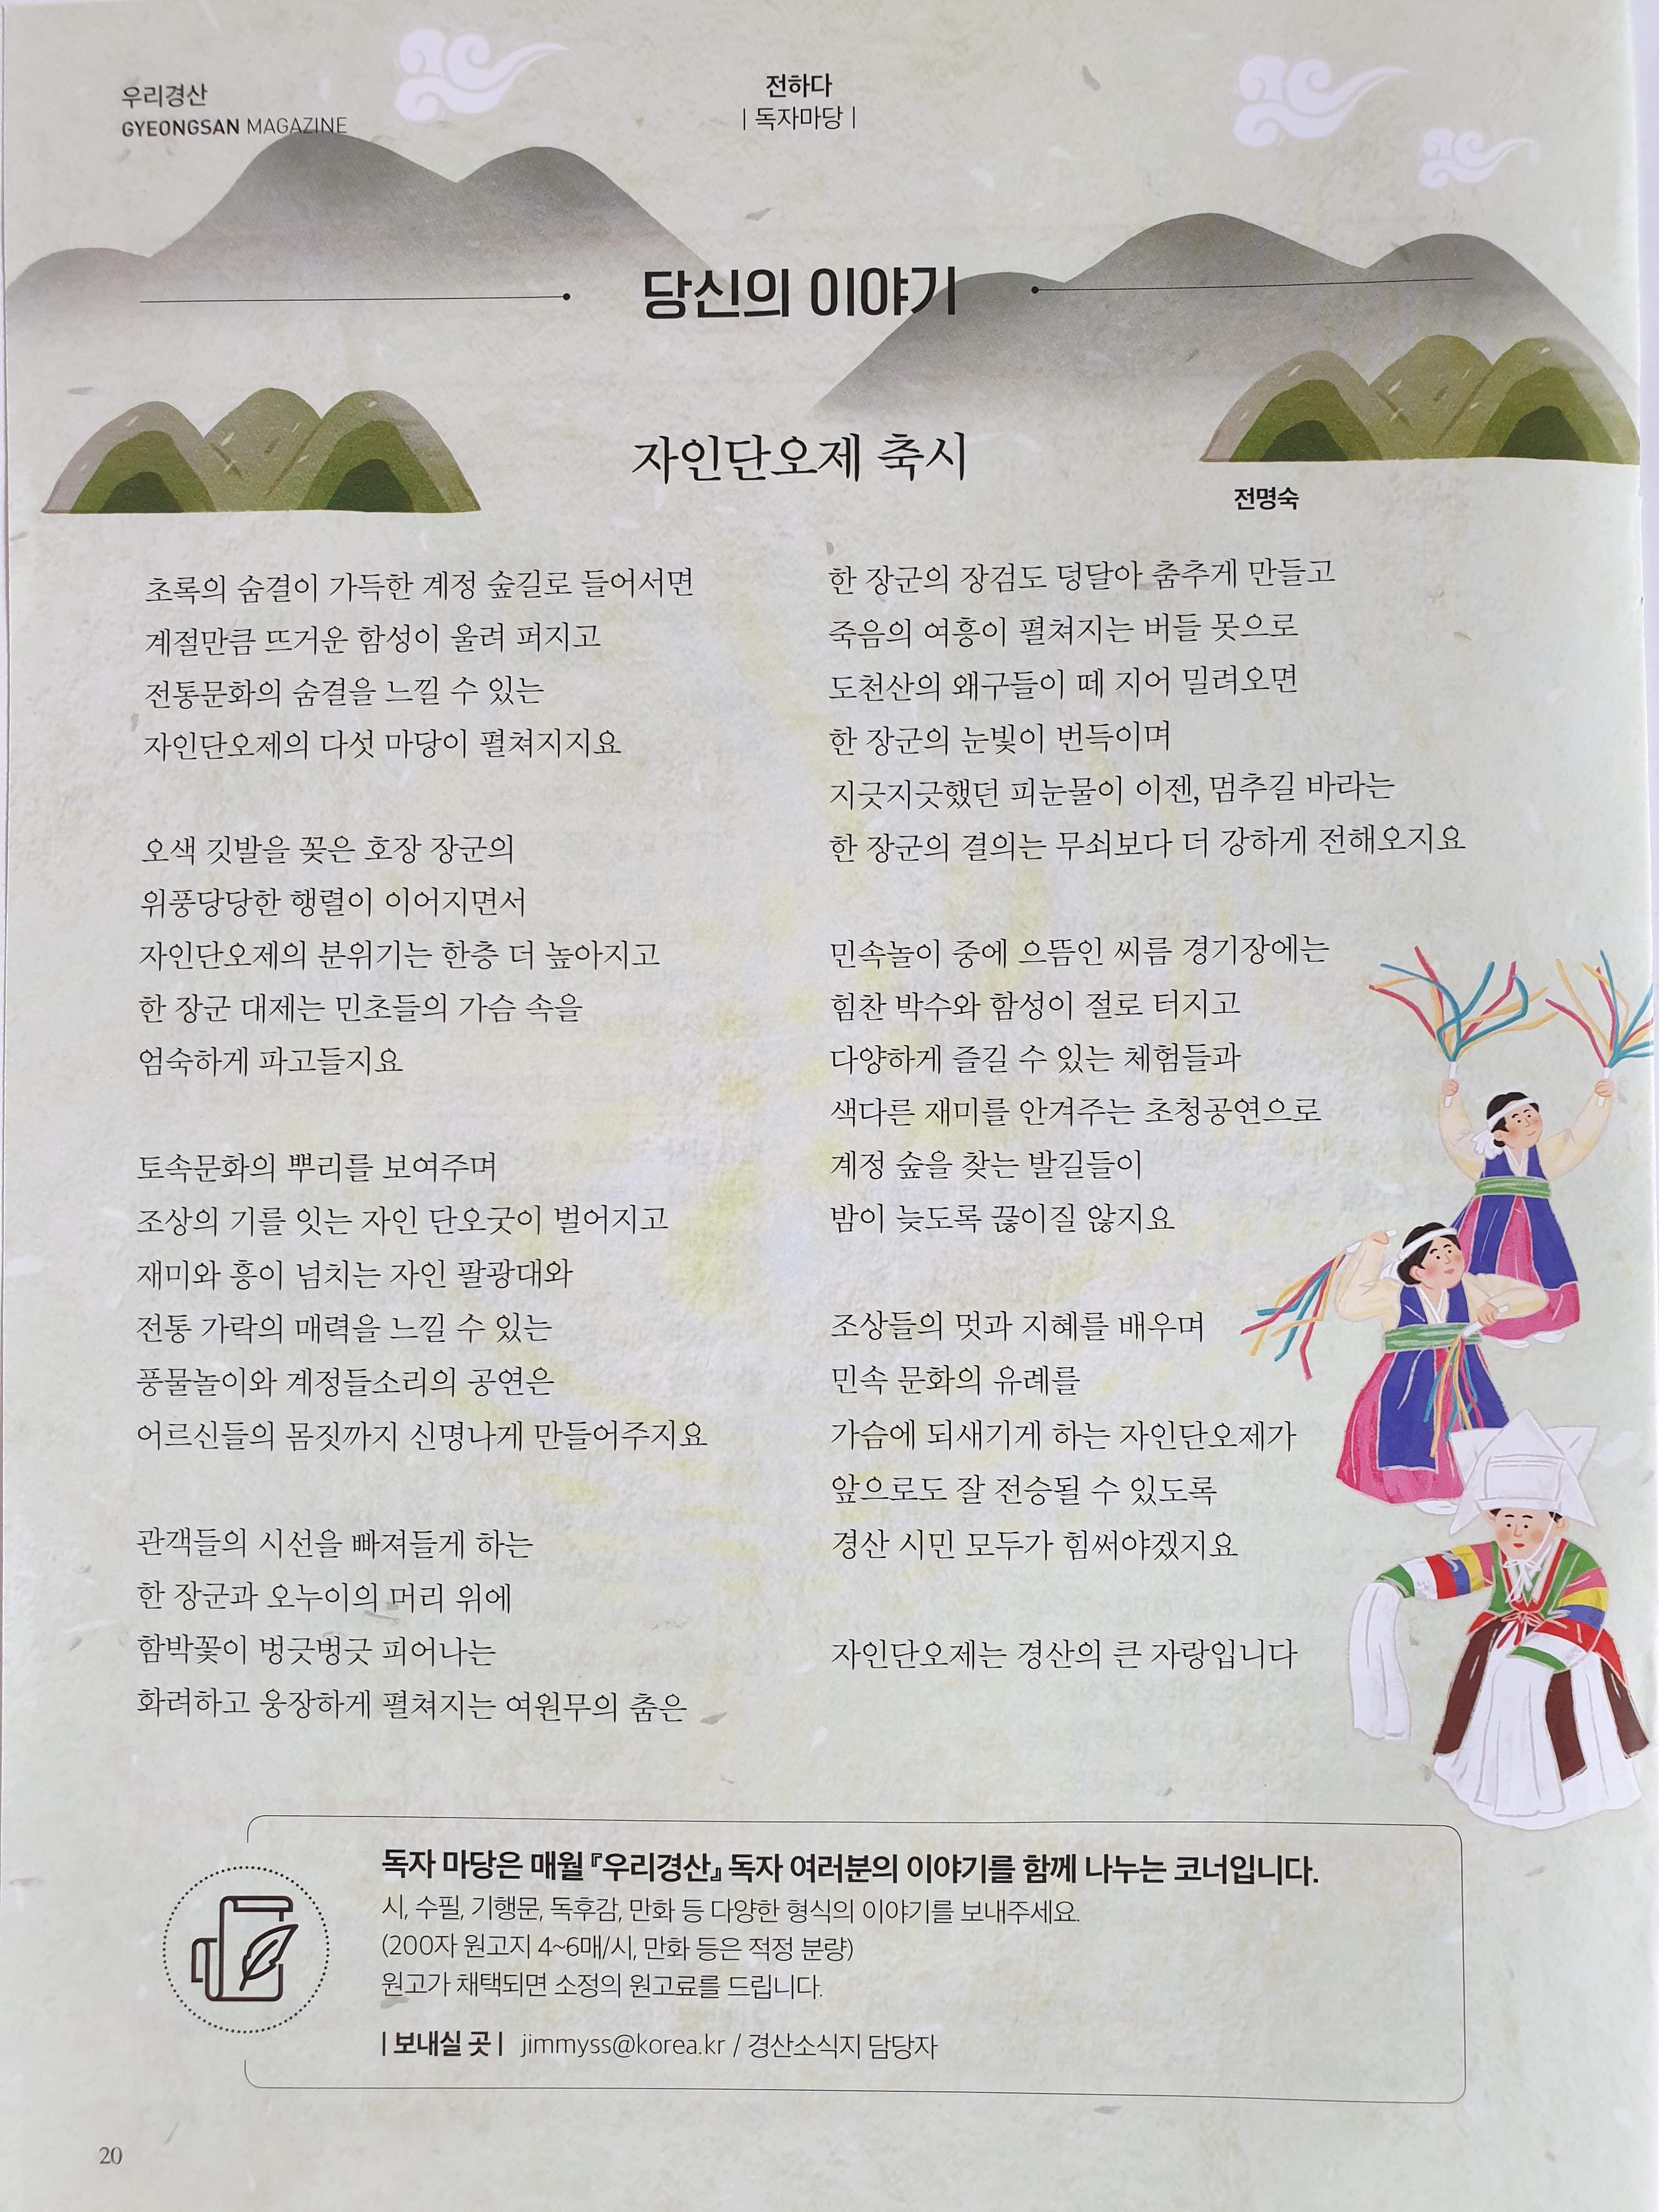 우리경산
GYEONGSAN MAGAZINE
전하다
| 독자마당 |
당신의 이야기
자인단오제 축시
전명숙
초록의 숨결이 가득한 계정 숲길로 들어서면
계절만큼 뜨거운 함성이 울려 퍼지고
전통문화의 숨결을 느낄 수 있는
자인단오제의 다섯 마당이 펼쳐지지요
오색 깃발을 꽂은 호장 장군의
위풍당당한 행렬이 이어지면서
자인단오제의 분위기는 한층 더 높아지고
한 장군 대제는 민초들의 가슴 속을
엄숙하게 파고들지요
토속문화의 뿌리를 보여주며
조상의 기를 잇는 자인 단오굿이 벌어지고
재미와 흥이 넘치는 자인 팔광대와
전통 가락의 매력을 느낄 수 있는
풍물놀이와 계정들소리의 공연은
어르신들의 몸짓까지 신명나게 만들어주지요
관객들의 시선을 빠져들게 하는
한 장군과 오누이의 머리 위에
함박꽃이 벙긋벙긋 피어나는
화려하고 웅장하게 펼쳐지는 여원무의 춤은
한 장군의 장검도 덩달아 춤추게 만들고
죽음의 여흥이 펼쳐지는 버들 못으로
도천산의 왜구들이 떼 지어 밀려오면
한 장군의 눈빛이 번득이며
지긋지긋했던 피눈물이 이젠, 멈추길 바라는
한 장군의 결의는 무쇠보다 더 강하게 전해오지요
민속놀이 중에 으뜸인 씨름 경기장에는
힘찬 박수와 함성이 절로 터지고
다양하게 즐길 수 있는 체험들과
색다른 재미를 안겨주는 초청공연으로
계정 숲을 찾는 발길들이
밤이 늦도록 끊이질 않지요
조상들의 멋과 지혜를 배우며
민속 문화의 유례를
가슴에 되새기게 하는 자인단오제가
앞으로도 잘 전승될 수 있도록
경산 시민 모두가 힘써야겠지요
자인단오제는 경산의 큰 자랑입니다
독자 마당은 매월 『우리경산』 독자 여러분의 이야기를 함께 나누는 코너입니다.
시, 수필, 기행문, 독후감, 만화 등 다양한 형식의 이야기를 보내주세요.
(200자 원고지 4~6매/시, 만화 등은 적정 분량)
원고가 채택되면 소정의 원고료를 드립니다.
| 보내실 곳 | jimmyss@korea.kr / 경산소식지 담당자
20